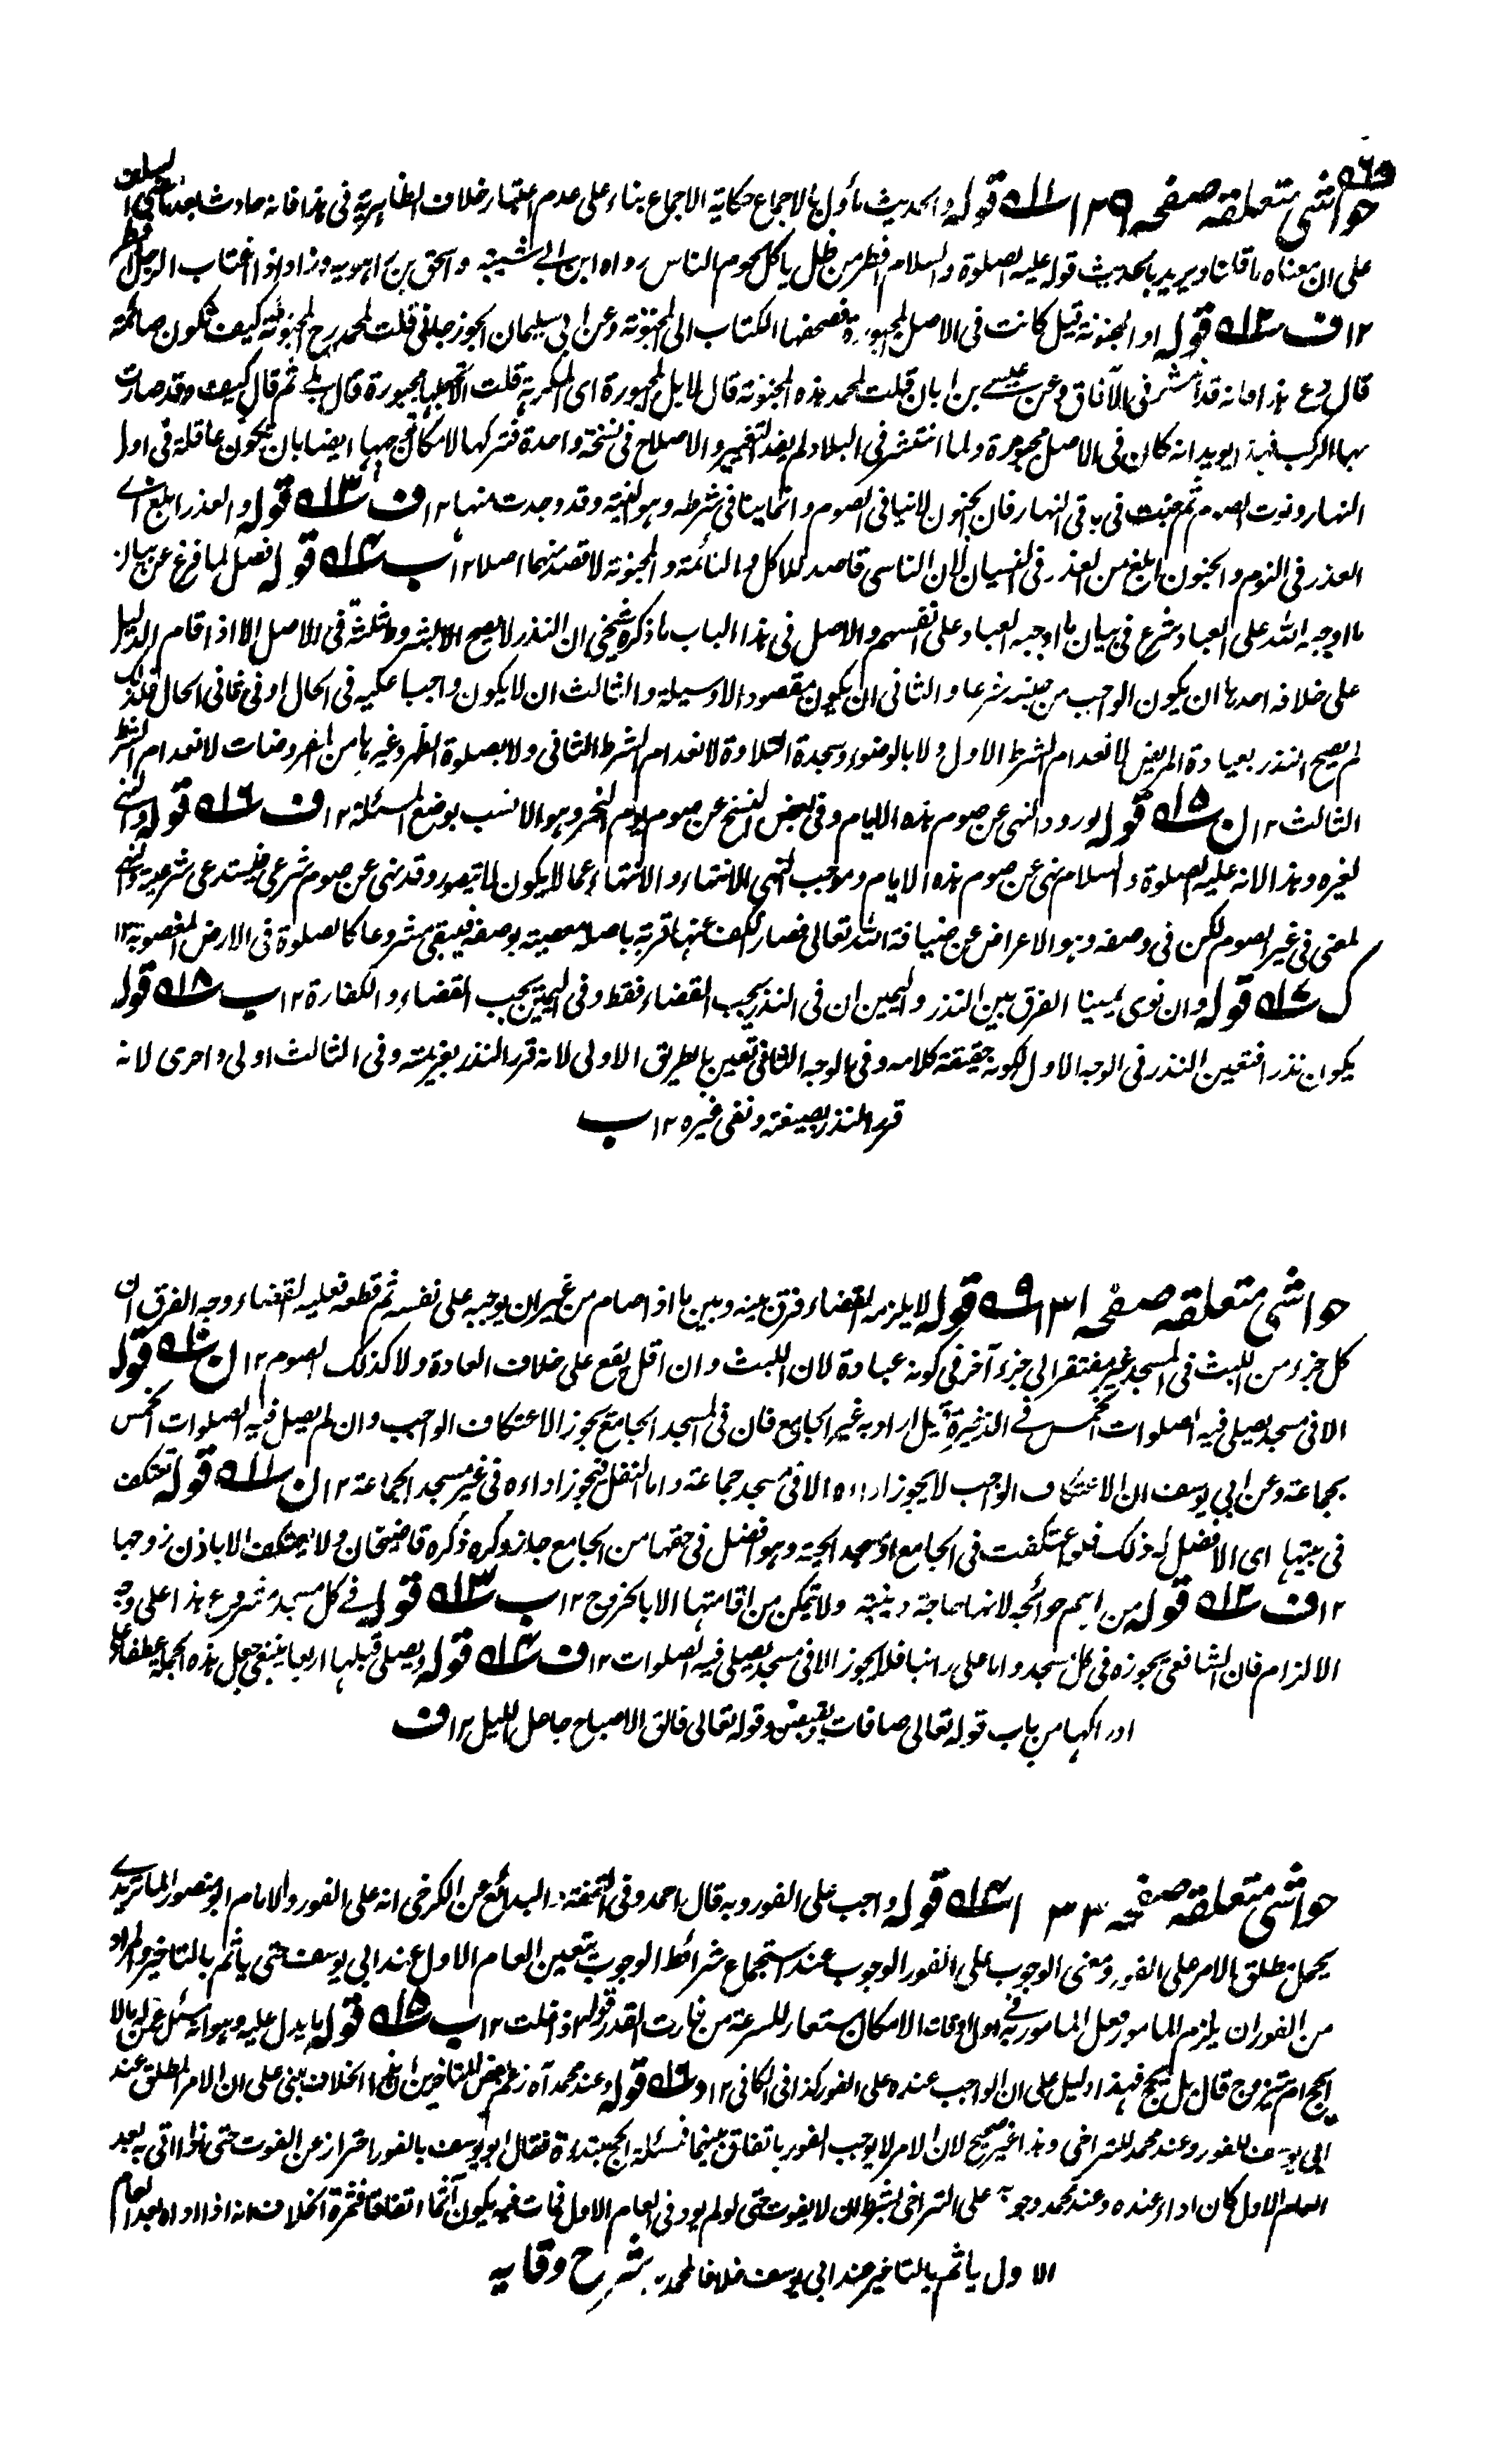 حواشی متعلقه صفحه ١٢٩ ا١١ قوله والحديث مأول بالاجماع حكاية الاجماع بناء على عدم اعتبار خلاف الظاهرية فى هذا فانه حادث بعد السلف
على ان معناه ما قلنا ويريد بالحديث قوله عليه الصلوة والسلام افطر من ظل يا كل لحوم الناس رواه ابن ابى شيبة واسحق بن راهويه وزاد اذا اغتاب الرجل افطر
١٢ف ١٢ه قوله او المجنونة قيل كانت فى الاصل المجبورة فصحفها الكتاب الى المجنونة وعن ابى سليمان الجوزجانى قلت لمحمد رح المجنونة كيف تكون صائمة
قال دع هذا فانه قد انتشر فى الآفاق وعن عيسے بن ابان قلت لمحمد هذه المجنونة قال لا بل المجبورة اى المكرهة قلت الا تجعلها مجبورة قال بلے ثم قال كيف وقد صارت
بها الركب فهذا يويد انه كان فى الاصل مجبورة ولما انتشر فى البلاد لم يفد التغيير والاصلاح فى نسخة واحدة فتركها لامكان توجيهها ايضا بان تكون عاقلة فى اول
النهار ونوت الصوم ثم جنت فى باقى النهار فان الجنون لا ينافى الصوم وانما ينافى شرطه وهو النية وقد وجدت منها ١٢ف ١٣ه قوله والعذر ابلغ اے
العذر فى النوم والجنون ابلغ من العذر فى النسيان لان الناسى قاصد للاكل والنائمة والمجنونة لا قصد منهما اصلا ١٢ب ١٤ه قوله فصل لما فرغ عن بيان
ما اوجبه الله على العباد شرع فى بيان ما اوجبه العباد على انفسهم والاصل فى هذا الباب ما ذكره شيخى ان النذر لا يصح الا بشروط ثلثة فى الاصل الا اذا قام الدليل
على خلافه احدها ان يكون الواجب من جنسه شرعا والثانى ان يكون مقصودا لا وسيلة والثالث ان لا يكون واجبا عليه فى الحال او فى ثانى الحال فلذلك
لم يصح النذر بعيادة المريض لانعدام الشرط الاول ولا بالوضوء وسجدة التلاوة لانعدام الشرط الثانى ولا بصلوة الظهر وغيرها من المفروضات لانعدام الشرط
الثالث ١٢ن ١٥ه قوله لورود النهى عن صوم هذه الايام وفى بعض النسخ عن صوم يوم النحر وهو الانسب بوضع المسئلة ١٢ف ١٦ه قوله والنهى
لغيره وهذا لانه عليه الصلوة والسلام نهى عن صوم هذه الايام وموجب النهى الانتهاء والانتهاء عما لا يكون لا يتصور وقد نهى عن صوم شرعى فيستدعى شرعيته والنهى
لمعنى فى غير الصوم لكن فى وصفه وهو الاعراض عن ضيافة الله تعالى فصار الكف عنها قربة باصله معصية بوصفه فيبقى مشروعا كالصلوة فى الارض المغصوبة ١٢
ك ١٧ه قوله وان نوى يمينا الفرق بين النذر واليمين ان فى النذر يجب القضاء فقط وفى اليمين يجب القضاء والكفارة ١٢ب ١٨ه قوله
يكون نذرا فتعين النذر فى الوجه الاول لكونه حقيقة كلامه وفى الوجه الثانى تعين بالطريق الاولى لانه قرر النذر بعزيمته وفى الثالث اولى واحرى لانه
قرر النذر بصيغته ونفى غيره ١٢ب
حواشی متعلقه صفحه ١٣١ ٩ه قوله لا يلزمه القضاء فرق بينه وبين ما اذا صام من غير ان يوجبه على نفسه ثم قطعه فعليه القضاء وجه الفرق ان
كل جزء من اللبث فى المسجد غير مفتقر الى جزء آخر فى كونه عبادة لان اللبث وان اقل يقع على خلاف العادة ولا كذلك الصوم ١٢ن ١٠ه قوله
الا فى مسجد يصلى فيه الصلوات الخمس فے الذخيرة قيل اراد به غير الجامع فان فى المسجد الجامع يجوز الاعتكاف الواجب وان لم يصل فيه الصلوات الخمس
بجماعة وعن ابى يوسف ان الاعتكاف الواجب لا يجوز اداءه الا فى مسجد جماعة واما النفل فيجوز اداءه فى غير مسجد الجماعة ١٢ن ١١ه قوله تعتكف
فى بيتها اى الافضل له ذلك فلو اعتكفت فى الجامع او مسجد الحية وهو افضل فى حقها من الجامع جاز وكره ذكره قاضيخان ولا تعتكف الا باذن زوجها
١٢ف ١٢ه قوله من اهم حوائجه لانها حاجة دينية ولا يتمكن من اقامتها الا بالخروج ١٢ب ١٣ه قوله فے كل مسجد مشروع هذا على وجه
الالزام فان الشافعى يجوزه فى كل مسجد واما على راينا فلا يجوز الا فى مسجد يصلى فيه الصلوات ١٢ف ١٤ه قوله ويصلى قبلها اربعا ينبغى جعل هذه الجملة عطفا على
ادراكها من باب قوله تعالى صافات ويقبضن وقوله تعالى فالق الاصباح جاعل الليل ١٢ف
حواشی متعلقه صفحه ١٣٣ ١٤ه قوله واجب على الفور وبه قال احمد وفى التحفة والبدائع عن الكرخى انه على الفور والامام ابو منصور الماتريدے
يحمل مطلق الامر على الفور ومعنى الوجوب على الفور الوجوب عند استجماع شرائط الوجوب يتعين العام الاول عند ابى يوسف حتى ياثم بالتاخير والمراد
من الفور ان يلزم المامور فعل المامور به فے اول اوقات الامكان مستعار للسرعة من فارت القدر قولهم اذا غلت ١٢ب ١٥ه قوله ما يدل عليه وهو انه سئل عمن له مال
ايحج ام يتزوج قال بل يحج فهذا دليل على ان الواجب عنده على الفور كذا فى الكافى ١٢و ١٦ه قوله وعند محمد آه زعم بعض المتاخرين ان هذا الخلاف مبنى على ان الامر المطلق عند
ابى يوسف للفور وعند محمد للتراخى وهذا غير صحيح لان الامر لا يوجب الفور باتفاق بينهما فمسئلة الحج مبتداة فقال ابو يوسف بالفور احتراز عن الفوت حتى اذا اتى به بعد
العام الاول كان اداء عنده وعند محمد وجوبه على التراخى بشرط ان لا يفوت حتى لو لم يود فى العام الاول فمات فيه يكون آثما اتفاقا فثمرة الخلاف انه اذا اداه بعد العام
الاول ياثم بالتاخير عند ابى يوسف خلافا لمحمد شرح وقايه